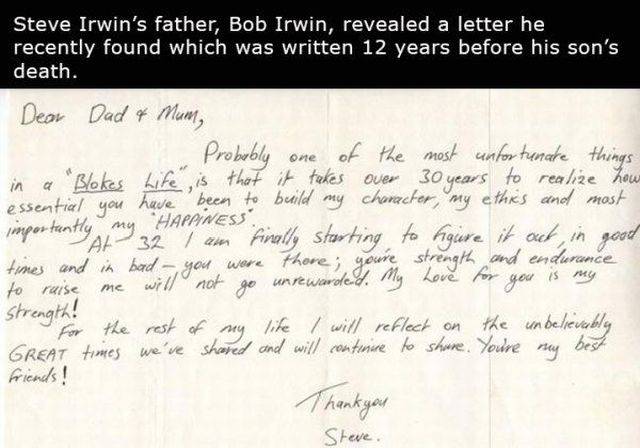 Steve Irwin's father, Bob Irwin, revealed a letter he
recently found which was written 12 years before his son's
death.
Dear Dad & Mum,
Probably one of the most unfortunate things
in a "Blokes Life", is that it takes over 30 years to realize how
essential you have been to build my character, my ethics and most
importantly my "HAPPINESS"
At 32 I am finally starting to figure it out, in good
times and in bad – you were there; you're strength and endurance
to raise me will not go unrewarded. My Love for you is my
Strength!
For the rest of my life I will reflect on the unbelievably
GREAT times we've shared and will continue to share. You're my best
friends!
Thankyou
Steve.